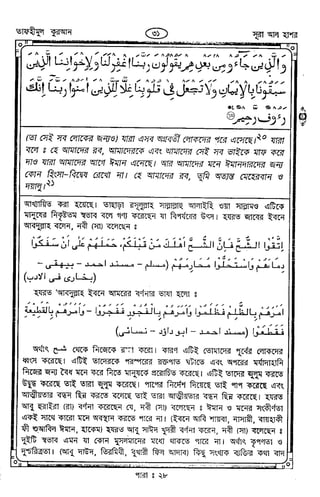 তাফহীমুল কুরআন
৩১
সূরা আল হাশর
وَالَّذِينَ جَاءُو مِنْ بَعْدِهِمْ يَقُولُونَ رَبَّنَا اغْفِرْ لَنَا وَلِإِخْوَانِنَا الَّذِينَ
سَبَقُونَا بِالْإِيمَانِ وَلَا تَجْعَلْ فِي قُلُوبِنَا غِلًّا لِلَّذِينَ آمَنُوا رَبَّنَا إِنَّكَ
رَءُوفٌ رَحِيمٌ
(তা সেই সব লোকের জন্যও) যারা এসব অগ্রবর্তী লোকদের পরে এসেছে।২০ যারা
বলে ঃ হে আমাদের রব, আমাদেরকে এবং আমাদের সেই সব ভাইকে মাফ করে
দাও যারা আমাদের আগে ঈমান এনেছে। আর আমাদের মনে ঈমানদারদের জন্য
কোন হিংসা-বিদ্বেষ রেখো না। হে আমাদের রব, তুমি অত্যন্ত মেহেরবান ও
দয়ালু।২১
আখ্যায়িত করা হয়েছে। তাছাড়া রসূলুল্লাহ সাল্লাল্লাহু আলাইহি ওয়া সাল্লামও এটিকে
মানুষের নিকৃষ্টতম স্বভাব বলে গণ্য করেছেন যা বিপর্যয়ের উৎস। হযরত জাবের ইবনে
আবদুল্লাহ বলেন, নবী (সা) বলেছেন ঃ
اِتَّقُوا الشُّحَّ فَإِنَّ الشُّحَّ أَهْلَكَ مَنْ قَبْلَكُمْ، حَمَلَهُمْ عَلَى أَنْ سَفَكُوا
دِمَاءَهُمْ وَاسْتَحَلُّوا مَحَارِمَهُمْ (مسلم - مسند احمد - بيهقى -
بخارى فى الادب)
হযরত আবদুল্লাহ ইবনে আমরের বর্ণনার ভাষা হলো ঃ
أَمَرَهُمْ بِالظُّلْمِ فَظَلَمُوا وَأَمَرَهُمْ بِالْفُجُورِ فَفَجَرُوا - وَأَمَرَهُمْ بِالْقَطِيعَةِ
فَقَطَعُوا (مسند احمد - ابو داؤد - نسائى)
অর্থাৎ شح থেকে নিজেকে রক্ষা করো। কারণ এটিই তোমাদের পূর্বের লোকদের
ধ্বংস করেছে। এটিই তাদেরকে পরস্পরের রক্তপাত ঘটাতে এবং অপরের মর্যাদাহানি
নিজের জন্য বৈধ মনে করে নিতে মানুষকে প্ররোচিত করেছে। এটিই তাদের জুলুম করতে
উদ্বুদ্ধ করেছে তাই তারা জুলুম করেছে। পাপের নির্দেশ দিয়েছে তাই পাপ করেছে এবং
আত্মীয়তার বন্ধন ছিন্ন করতে বলেছে তাই তারা আত্মীয়তার বন্ধন ছিন্ন করেছে। হযরত
আবু হুরাইরা (রা) বর্ণনা করেছেন যে, নবী (সা) বলেছেন ঃ ঈমান ও মনের সংকীর্ণতা
একই সাথে কারো মনে অবস্থান করতে পারে না। (ইবনে আবি শায়বা, নাসায়ী, বায়হাকী
ফী শুআবিল ঈমান, হাকেম) হযরত আবু সাঈদ খুদরী বর্ণনা করেছেন, নবী (সা) বলেছেন ঃ
দুইটি স্বভাব এমন যা কোন মুসলমানের মধ্যে থাকতে পারে না। অর্থাৎ কৃপণতা ও
দুশ্চরিত্রতা। (আবু দাউদ, তিরমিযী, বুখারী ফিল আদাব) কিছু সংখ্যক ব্যতিক্রম কথা বাদ
পারা ঃ ২৮